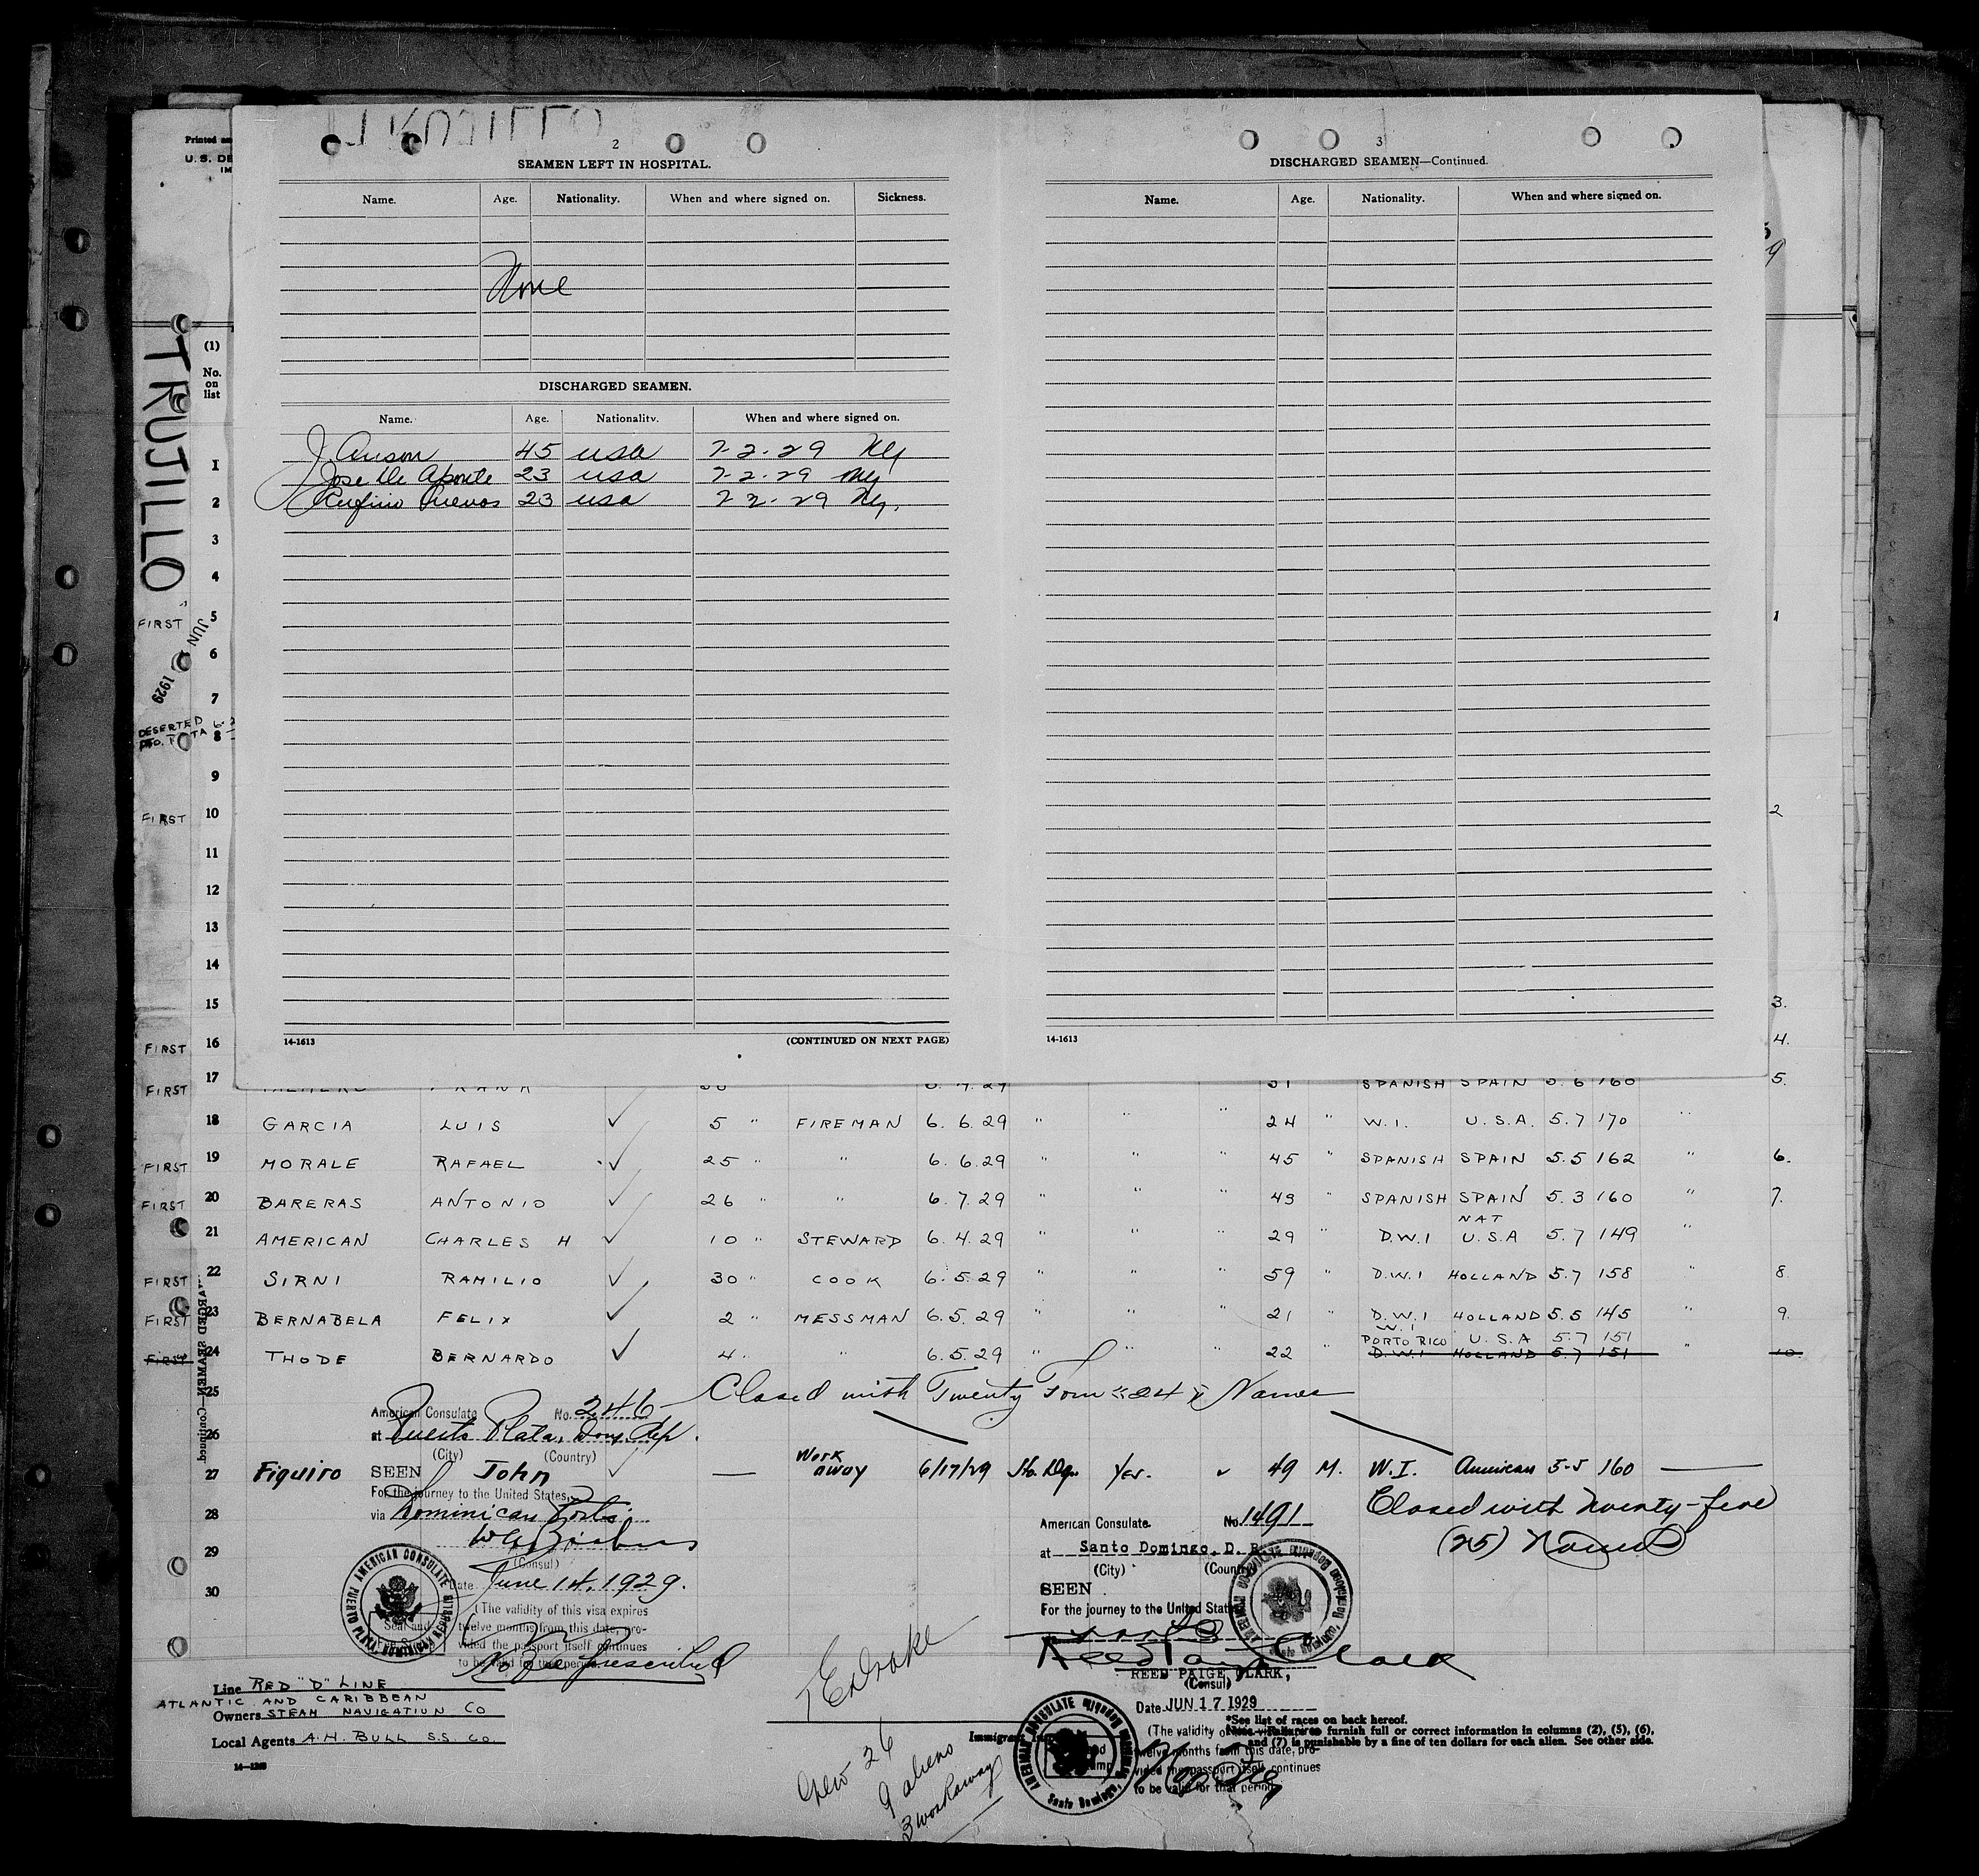 2
SEAMEN LEFT IN HOSPITAL.
Name. Age. Nationality. When and where signed on. Sickness.
None
DISCHARGED SEAMEN.
Name. Age. Nationality. When and where signed on.
J. Anson 45 usa 7-2-29 Ny
Jose De Aponte 23 usa 7-2-29 Ny
Rufino 23 usa 7 2-29 Ny.
14-1613 (CONTINUED ON NEXT PAGE)
3
DISCHARGED SEAMEN—Continued.
Name. Age. Nationality. When and where signed on.
14-1613
Printed
U. S. DE
IM
TRUJILLO
(1)
No.
on
list
1
2
3
4
FIRST 5 1
JUN 1929
6
7
DESERTED
8
9
FIRST 10 2
11
12
13
14
15 3.
FIRST 16 4.
FIRST 17 FRANK 31 SPANISH SPAIN 5.6 160 5.
18 GARCIA LUIS ✓ 5 " FIREMAN 6. 6. 29 " " " 24 " W.I. U.S.A. 5.7 170 "
FIRST 19 MORALE RAFAEL ✓ 25 " " 6. 6. 29 " " " 45 " SPANISH SPAIN 5.5 162 " 6.
FIRST 20 BARERAS ANTONIO ✓ 26 " " 6. 7. 29 " " " 43 " SPANISH SPAIN 5.3 160 " 7.
NAT
21 AMERICAN CHARLES H ✓ 10 " STEWARD 6. 4. 29 " " " 29 " D.W.I U.S.A 5.7 149 "
FIRST 22 SIRNI RAMILIO ✓ 30 " COOK 6. 5. 29 " " " 59 " D.W.I HOLLAND 5.7 158 " 8
FIRST 23 BERNABELA FELIX ✓ 2 " MESSMAN 6. 5. 29 " " " 21 " D.W.I HOLLAND 5.5 145 " 9.
W.I
PORTO RICO U.S.A 5.7 151
FIRST 24 THODE BERNARDO ✓ 4 " " 6. 5. 29 " " " 22 " D.W.I HOLLAND 5.7 151 " 10.
DISCHARGED SEAMEN—Continued.
25 Closed with Twenty Four "24" Names
American Consulate No. 246
26 at Puerto Plata, Dom. Rep.
(City) (Country)
27 Figuiro John ✓ — Work away 6/17/29 Sto. Dgo. Yes. ✓ 49 M. W.I. American 5-5 160 —
SEEN
For the journey to the United States,
28 via Dominican Ports
29 (Consul)
Date June 14, 1929.
30 (The validity of this visa expires
twelve months from this date, pro-
vided the passport itself continues
to be valid for that period.)
No fee prescribed
AMERICAN CONSULATE
PUERTO PLATA, DOMINICAN REPUBLIC
Closed with twenty-five
(25) Names
American Consulate. No. 1491
at Santo Domingo, D. R.
(City) (Country)
SEEN
For the journey to the United States
Reed Paige Clark
REED PAIGE CLARK,
(Consul)
Date JUN 17 1929
(The validity of this visa expires
twelve months from this date, pro-
vided the passport itself continues
to be valid for that period.)
No Fee
AMERICAN CONSULATE
Santo Domingo, Dominican Republic
Line RED "D" LINE
ATLANTIC AND CARIBBEAN
Owners STEAM NAVIGATION CO
Local Agents A. H. BULL S.S. CO.
14—1280
Drake
Immigrant
Crew 26
9 aliens
3 workaway
*See list of races on back hereof.
Note.—Failure to furnish full or correct information in columns (2), (5), (6),
and (7) is punishable by a fine of ten dollars for each alien. See other side.